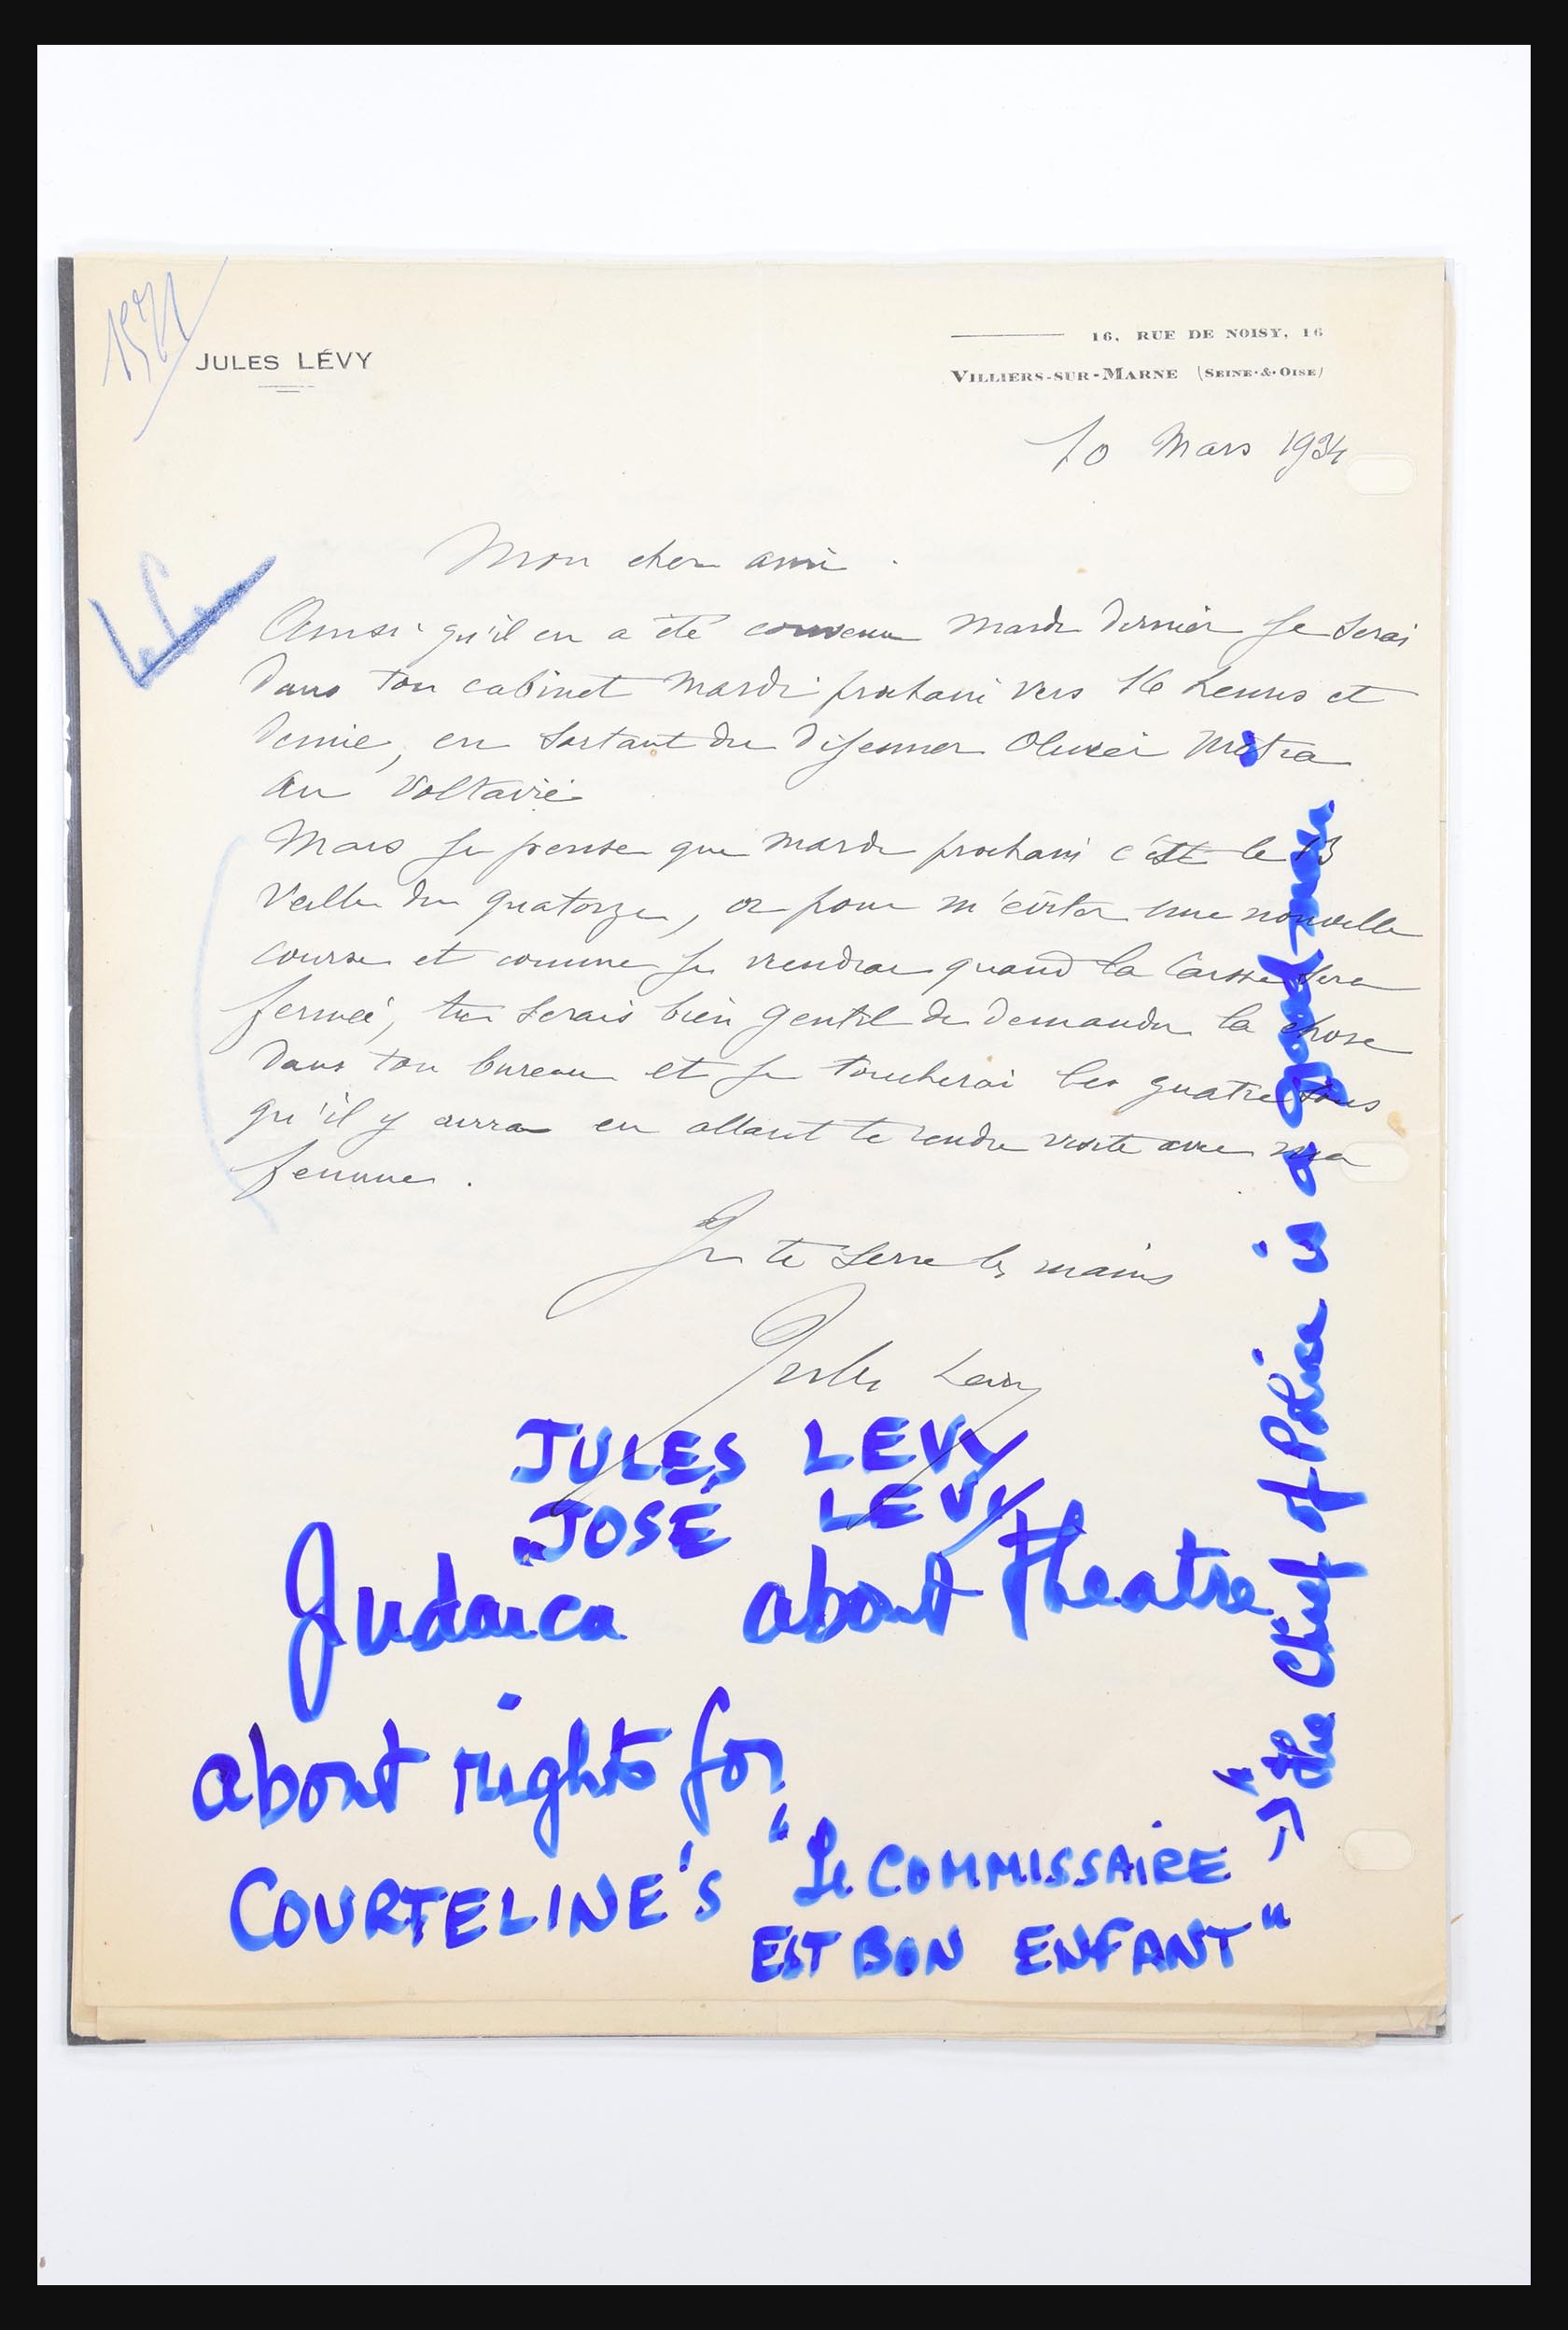 JULES LÉVY
16, RUE DE NOISY, 16
VILLIERS-SUR-MARNE (SEINE-&-OISE)
10 Mars 1934
Mon cher ami.
Ainsi qu'il en a été convenu mardi dernier je serai
dans ton cabinet mardi prochain vers 16 heures et
demie, en sortant du déjeuner Olivier Métra
au Voltaire
Mais je pense que mardi prochain c'est le 13
veille du quatorze, or pour m'éviter une nouvelle
course et comme je viendrai quand la Caisse sera
fermée, tu serais bien gentil de demander la chose
dans ton bureau et je toucherai les quatre sous
qu'il y aura en allant te rendre visite avec ma
femme.
Je te serre les mains
Jules Levy
JULES LEVY
JOSÉ LEVY
Judaïca about Theatre
about rights for
COURTELINE'S "Le COMMISSAIRE
EST BON ENFANT"
→ "the Chief of Police is a good man